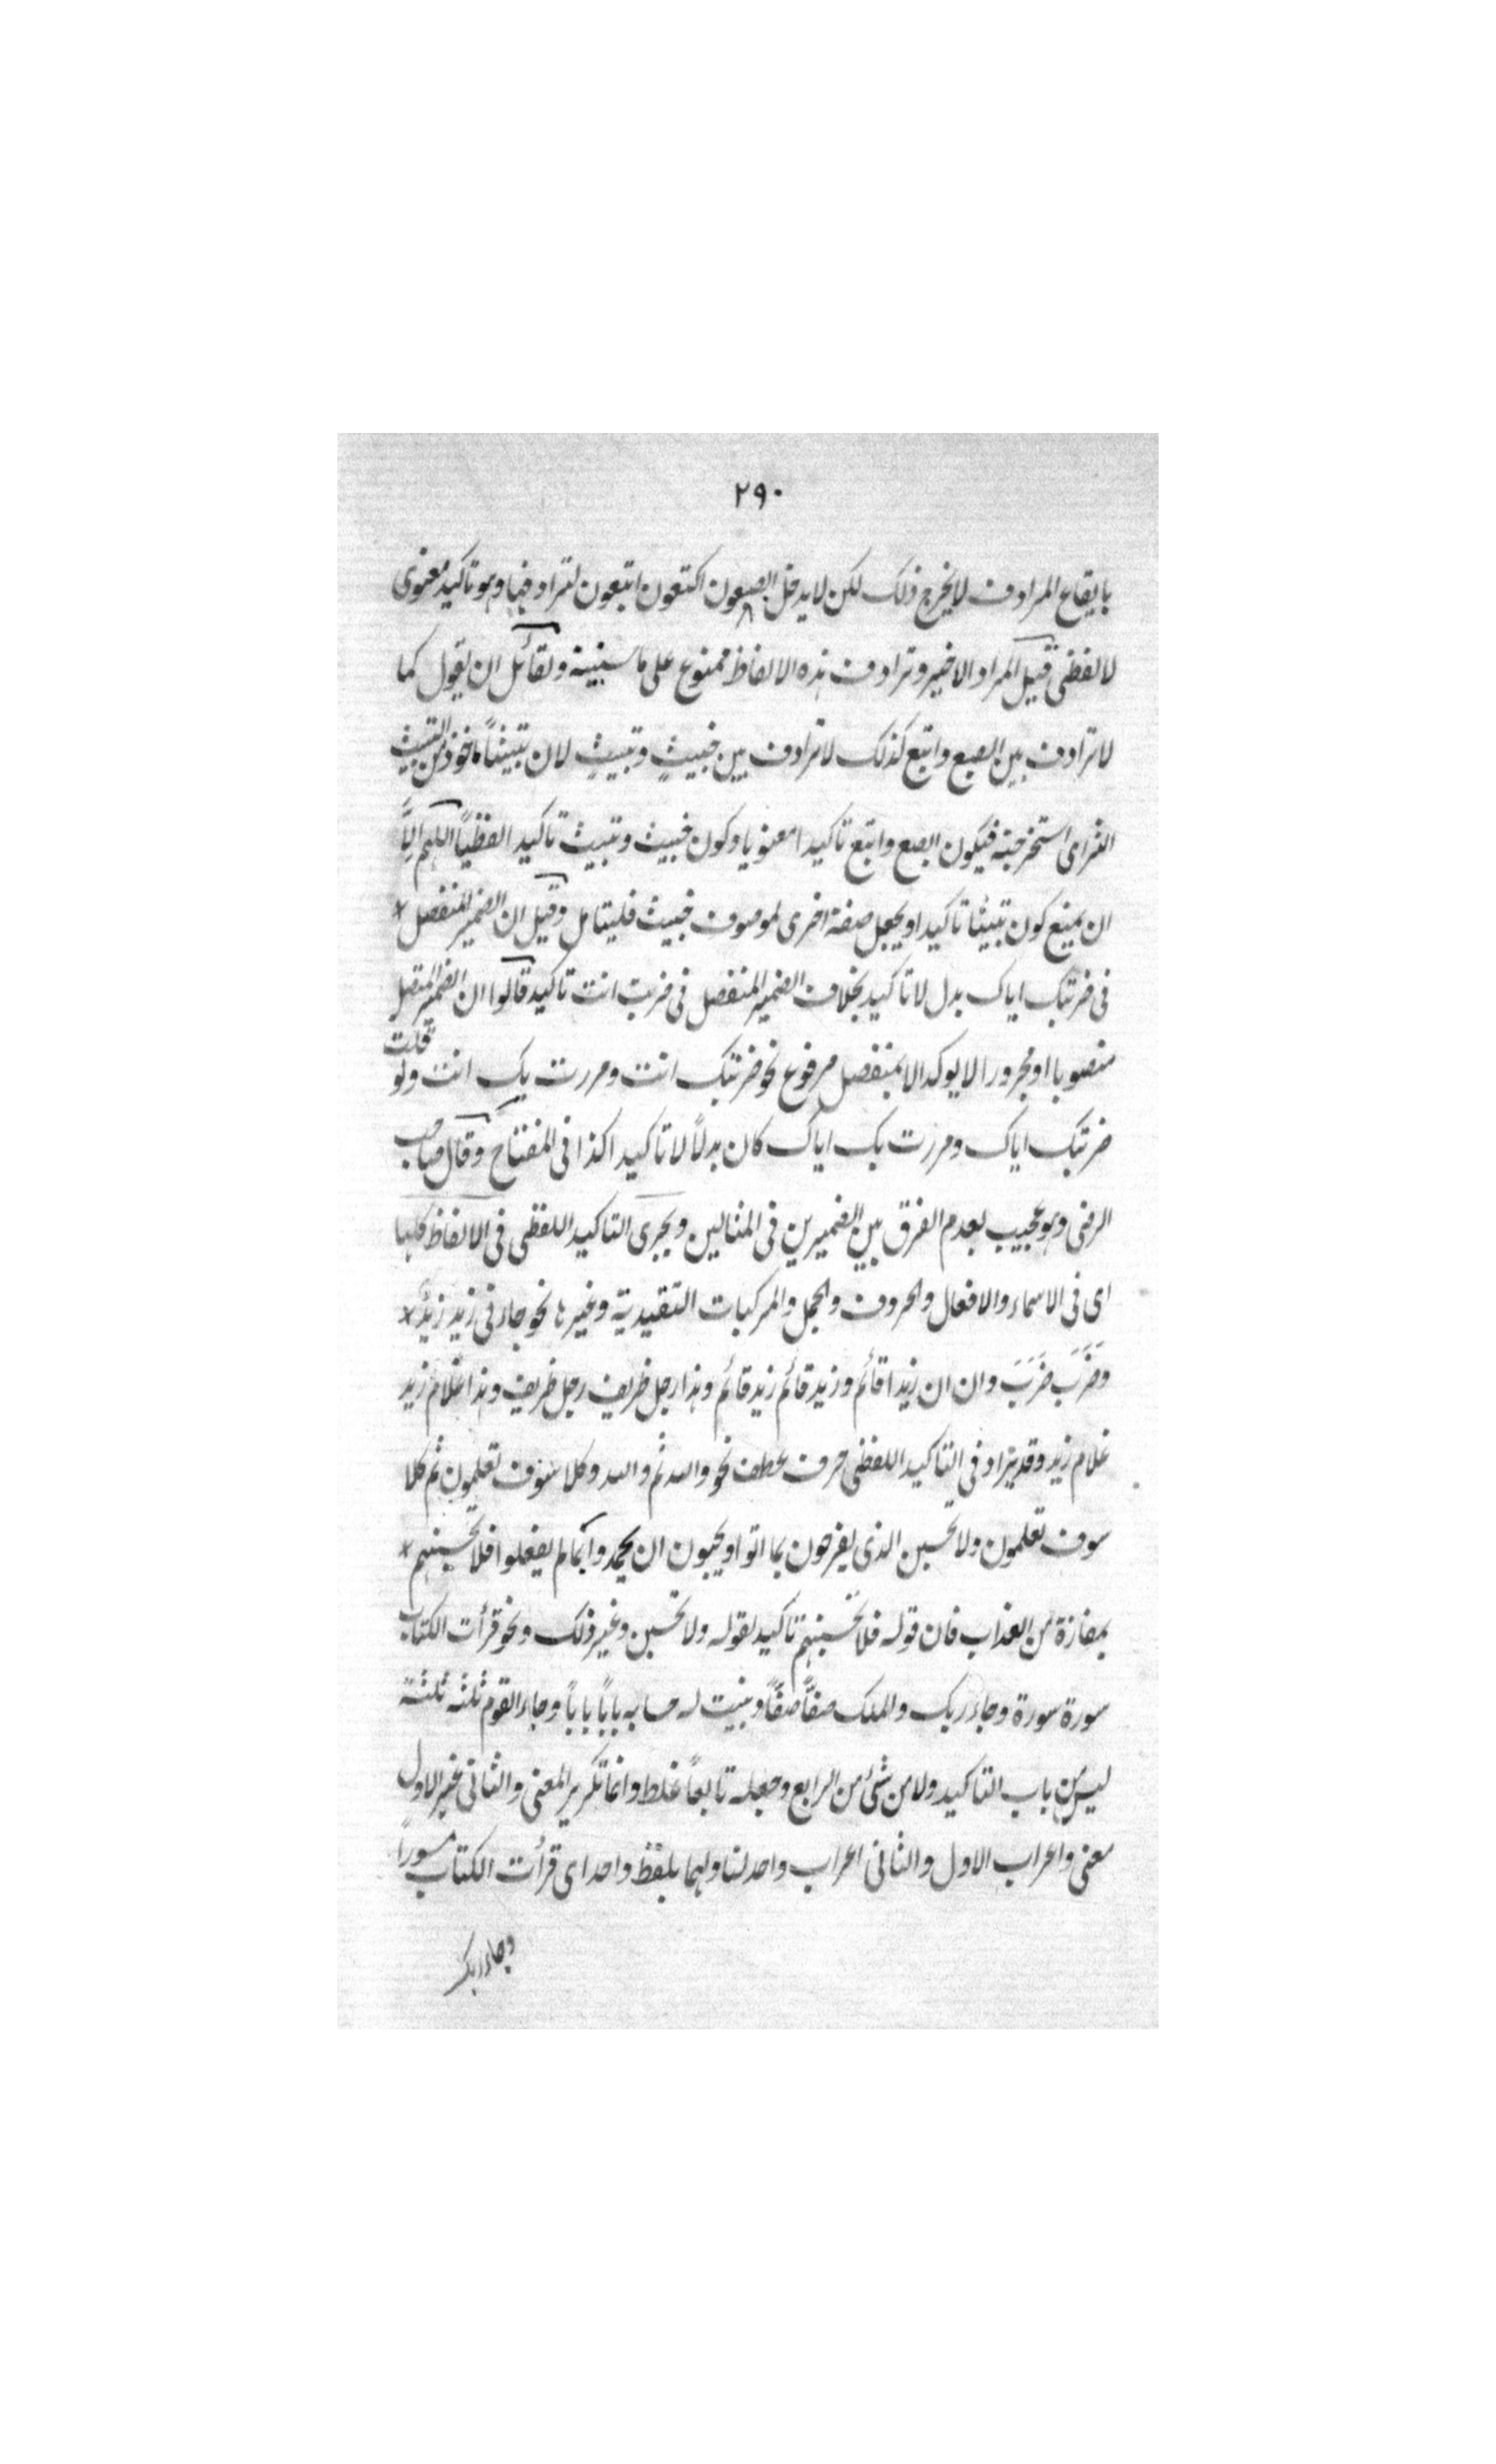 ٢٩٠
بايقاع المرادف لا يخرج ذلك لكن لا يدخل ابصعون اكتعون ابتعون لترادفها وهو تاكيد معنوى
لا لفظى قيل المراد الاخير وترادف هذه الالفاظ ممنوع على ما سنبينه ولقائل ان يقول كما
لا ترادف بين ابصع وابتع كذلك لا ترادف بين خبيثٍ ونبيثٍ لان نبيثاً ماخوذ من النبيث
الشر اى استخرجته فيكون ابصع وابتع تاكيدا معنويا وكون خبيث ونبيث تاكيدا لفظياً اللهم الَّا
ان يمنع كون نبيثا تاكيدا ويجعل صفة اخرى لموصوف خبيث فليتامل وقيل ان الضمير المنفصل *
فى ضربتك اياك بدل لا تاكيد بخلاف الضمير المنفصل فى ضربت انت تاكيد قالوا ان الضمير المتصل
منصوبا او مجرورا لا يوكد الا بمنفصل مرفوع نحو ضربتك انت ومررت بك انت ولو قلت
ضربتك اياك ومررت بك اياك كان بدلاً لا تاكيدا كذا فى المفتاح وقال صاحب
الرضى وهو عجيب لعدم الفرق بين الضميرين فى المثالين ويجرى التاكيد اللفظى فى الالفاظ كلها
اى فى الاسماء والافعال والحروف والجمل والمركبات التقيدية وغيرها نحو جاءنى زيد زيدٌ *
وضَرَبَ ضَرَبَ وان ان زيدا قائم وزيد قائم زيد قائم وهذا رجل ظريف رجل ظريف وهذا غلام زيد
غلام زيد وقد يزاد فى التاكيد اللفظى حرف عطف نحو والله ثم والله وكلا سوف تعلمون ثم كلا
سوف تعلمون ولا تحسبن الذى يفرحون بما اتوا ويحبون ان يحمدوا بما لم يفعلوا فلا تحسبنهم *
بمفازة من العذاب فان قوله فلا تحسبنهم تاكيد لقوله ولا تحسبن وغير ذلك ونحو قرأت الكتاب
سورة سورة وجاء ربك والملك صفّاً صفّاً وبنيت له حسابه باباً باباً وجاء القوم ثلثه ثلثة
ليس من باب التاكيد ولا من شئ من الرابع وجعله تابعاً غلط وانما تكرير المعنى والثانى غير الاول
معنى واعراب الاول والثانى اعراب واحد لتناولهما بلفظ واحد اى قرأت الكتاب سوراً
وجاء ربك